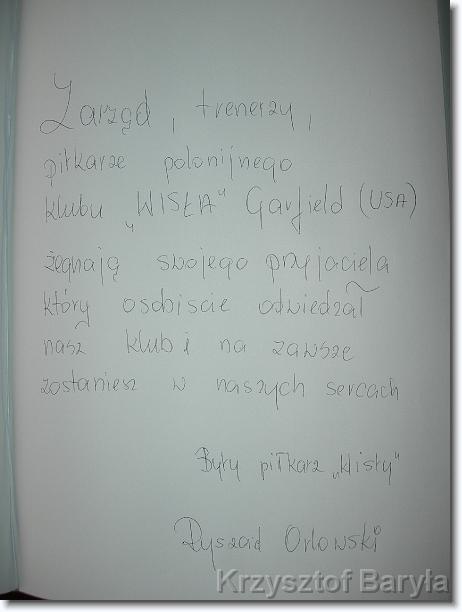 Zarząd, trenerzy,
piłkarze polonijnego
klubu „WISŁA" Garfield (USA)
żegnają swojego przyjaciela
który osobiscie odwiedzał
nasz klub i na zawsze
zostaniesz w naszych sercach
Były piłkarz „Wisły"
Ryszard Orłowski
Krzysztof Baryła